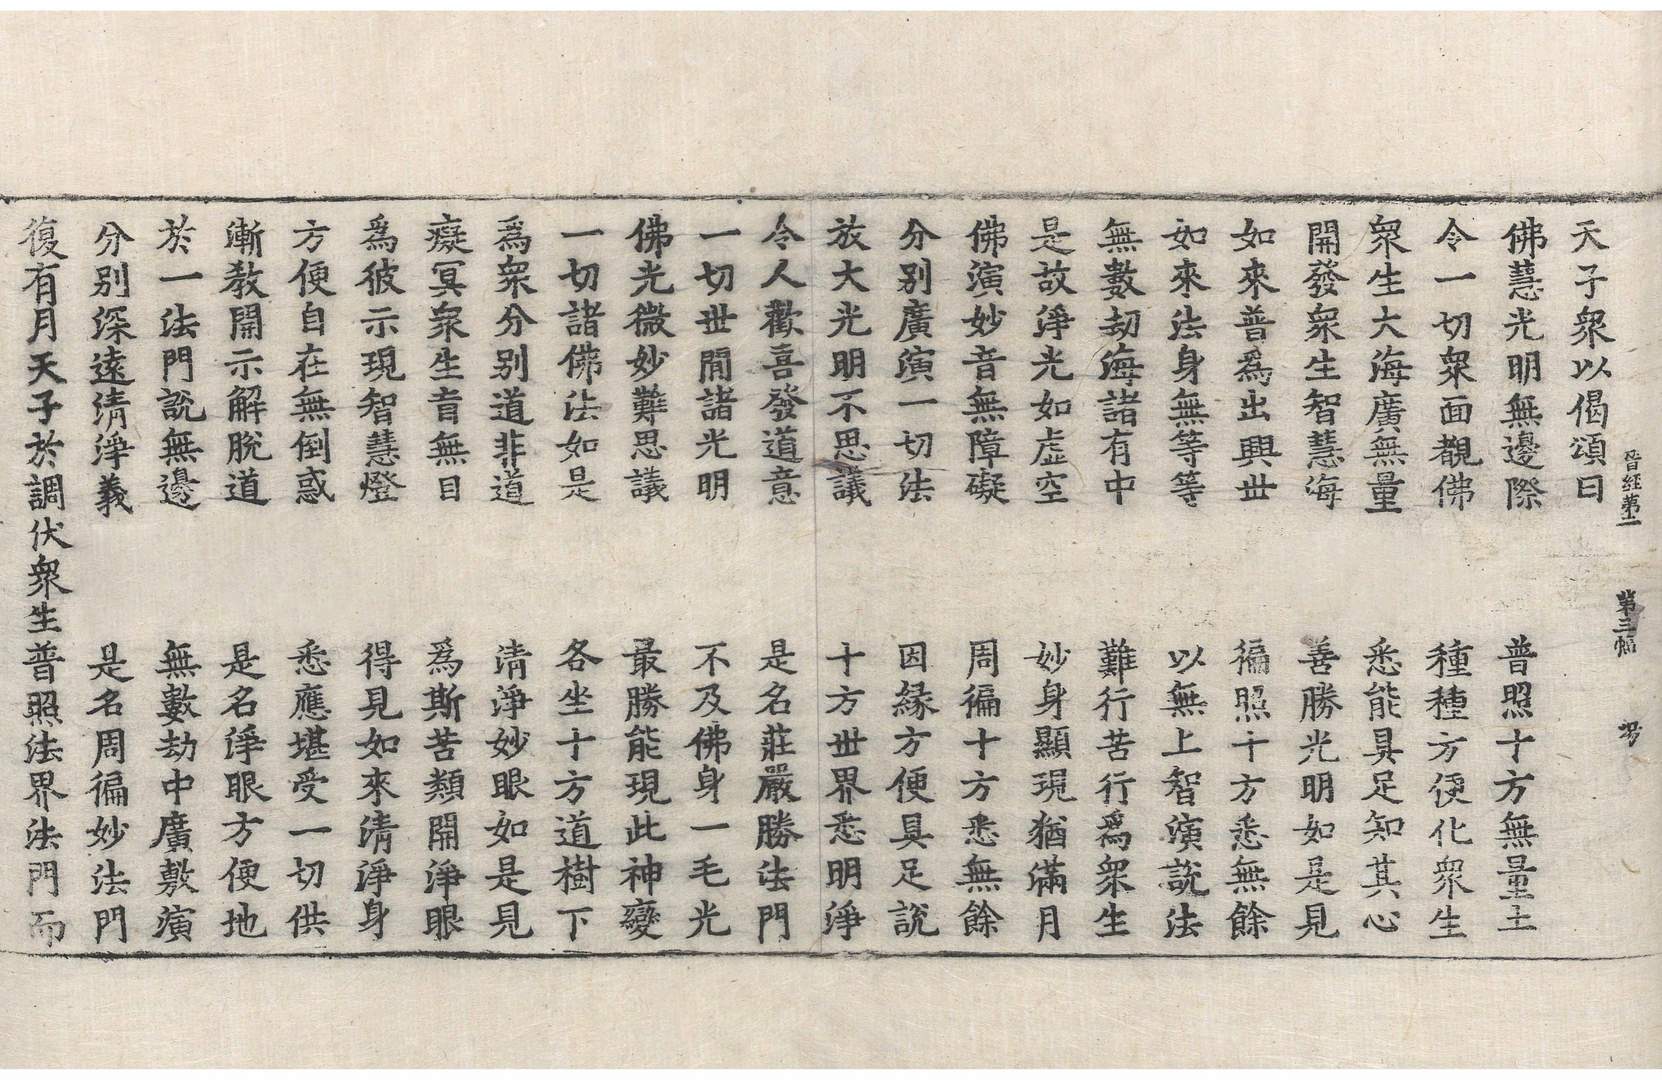 晉經第二 第三幅
天子衆以偈頌曰
佛慧光明無邊際 普照十方無量土
令一切衆面覩佛 種種方便化衆生
衆生大海廣無量 悉能具足知其心
開發衆生智慧海 善勝光明如是見
如來普爲出興世 徧照十方悉無餘
如來法身無等等 以無上智演說法
無數劫海諸有中 難行苦行爲衆生
是故淨光如虛空 妙身顯現猶滿月
佛演妙音無障礙 周徧十方悉無餘
分別廣演一切法 因緣方便具足說
放大光明不思議 十方世界悉明淨
令人歡喜發道意 是名莊嚴勝法門
一切世間諸光明 不及佛身一毛光
佛光微妙難思議 最勝能現此神變
一切諸佛法如是 各坐十方道樹下
爲衆分別道非道 清淨妙眼如是見
癡冥衆生盲無目 爲斯苦類開淨眼
爲彼示現智慧燈 得見如來清淨身
方便自在無倒惑 悉應堪受一切供
漸教開示解脫道 是名淨眼方便地
於一法門說無邊 無數劫中廣敷演
分別深遠清淨義 是名周徧妙法門
復有月天子於調伏衆生普照法界法門而